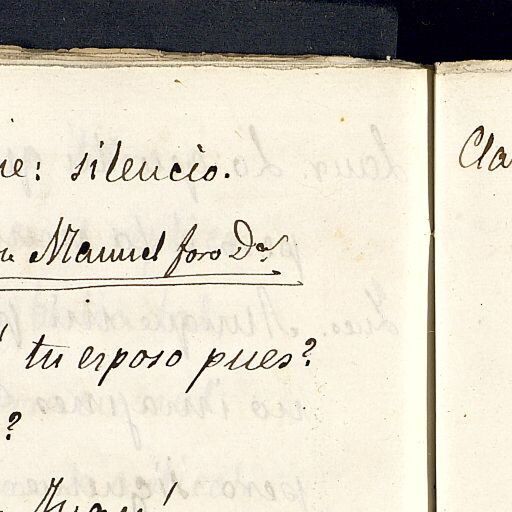 ie: silencio.
n Manuel foro Dra.
tu esposo pues?
?
Juan!
Cla